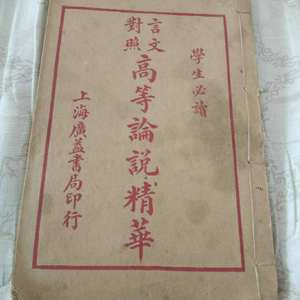 學生必讀
言文對照
高等論說精華
上海廣益書局印行